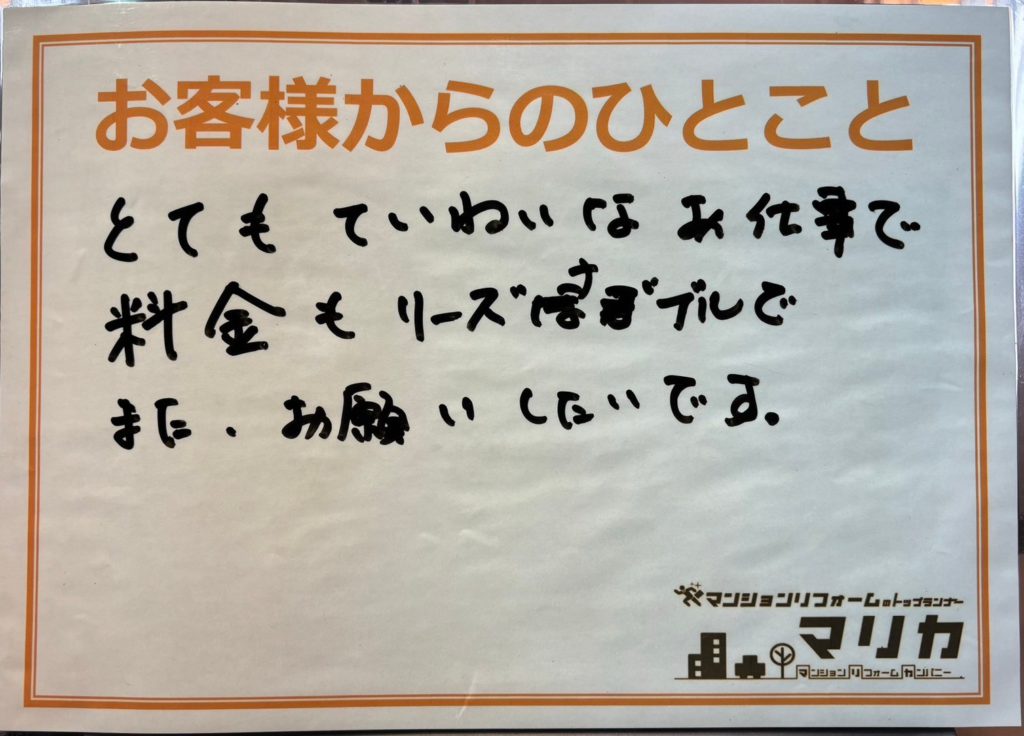 お客様からのひとこと
とても ていねいな お仕事で
料金も リーズナブルで
また、お願いしたいです。
マンションリフォームのトップランナー
マリカ
マンションリフォームカンパニー